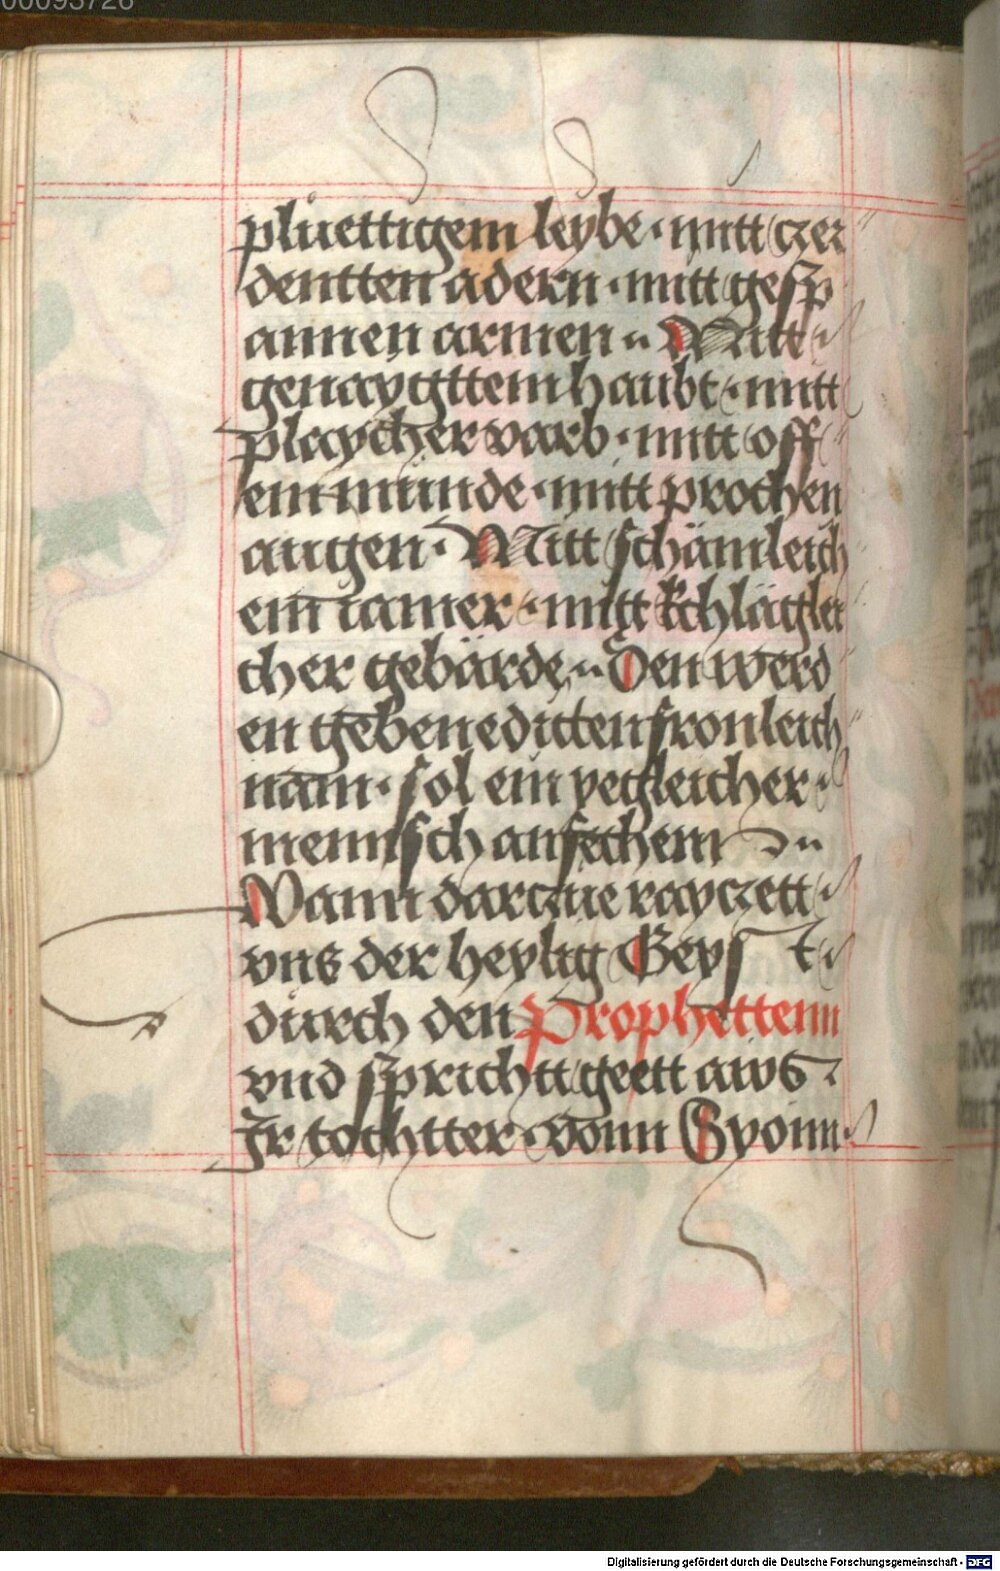 00093726
plüettigem leybe · mitt czer
dentten adern · mitt gesp
annen armen · Mitt
genaygttem haubt · mitt
playcher varb · mitt off
em münde · mitt prochen
augen · Mitt schämleich
em iamer · mitt
cher gebärde · Den werd
en gebenedicten fronleich
nam · sol ein yegleicher
mennsch ansechenn
Wann darczue rayczett
vns der heylig Geyst
durch den Prophettenn
vnd sprichtt geett aws
Ir tochtter vonn Syonn
Digitalisierung gefördert durch die Deutsche Forschungsgemeinschaft - DFG